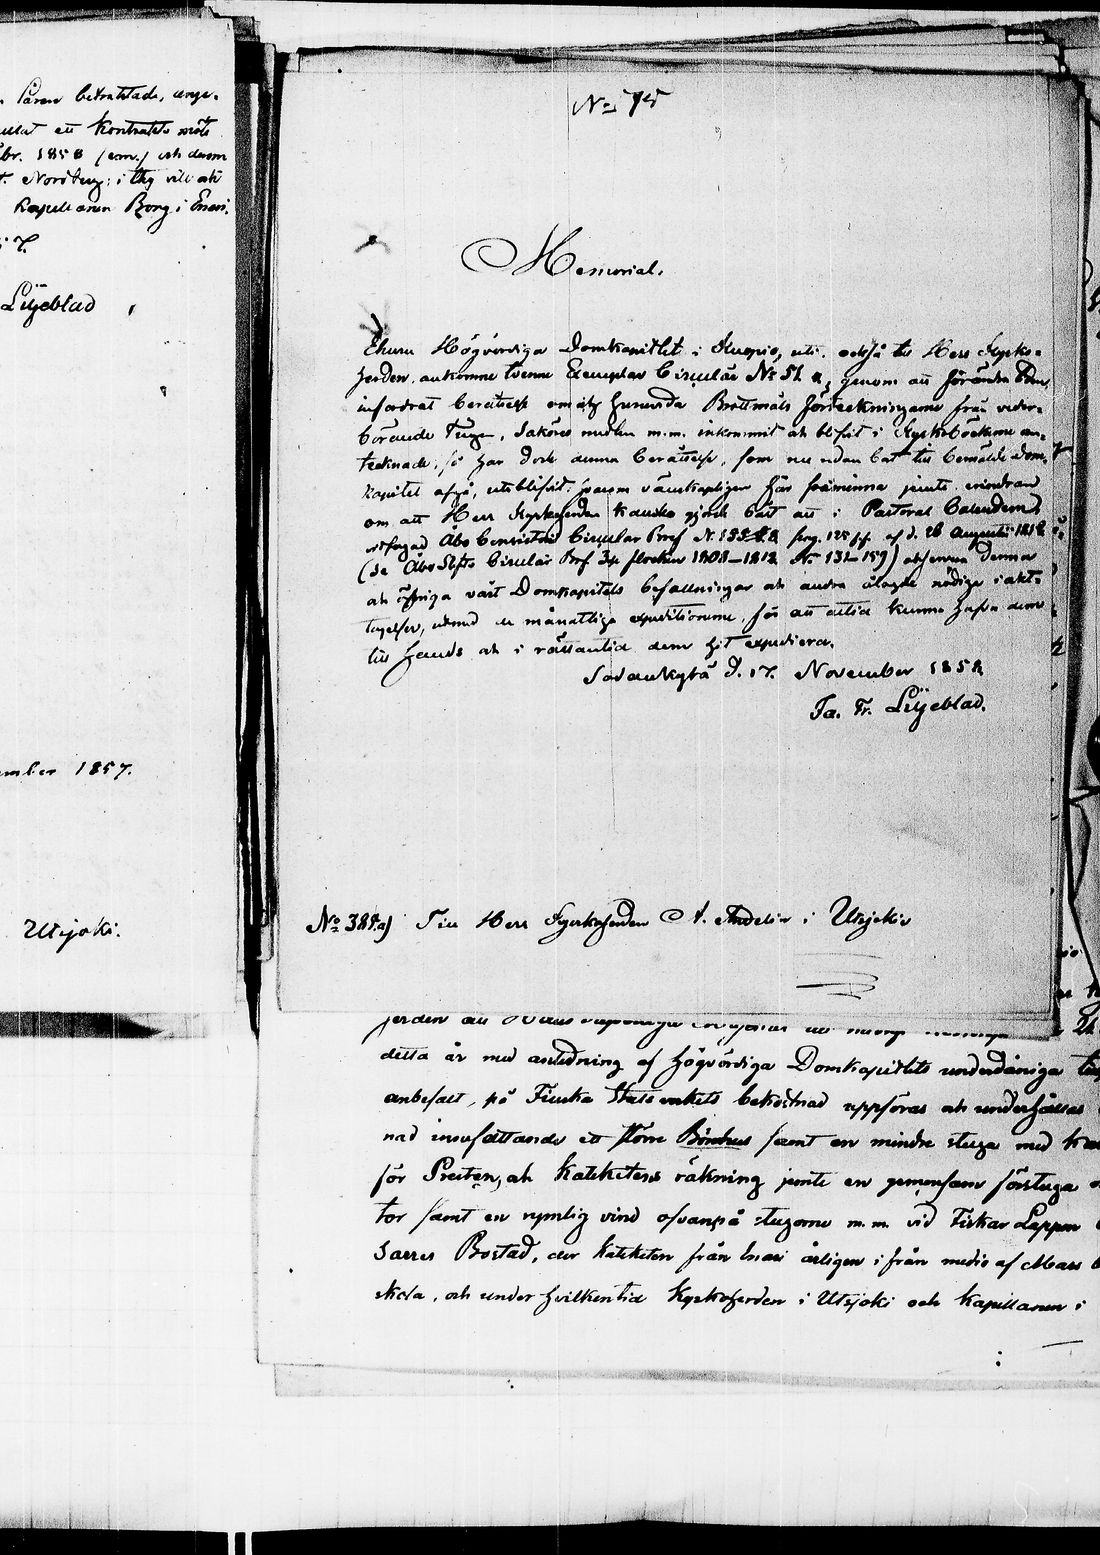 Låren betraktade, ange-
ett Kontrakts möte
br. 1858 (e.m.) och dessm
Nordberg; i thy vill och
Kapellanen Borg i Enari.
Liljeblad
ember 1857.
Utsjoki.
No 75
Memorial.
Ehuru Högvördiga Domkapitlet i Kuopio, uti, också till Herr Kyrko-
herden, ankomne tvenne Exemplar Circulär No 51 genom att
infordrat berättelse om Brottmåls förteckningarne från veder-
börande Ting, Sakören medlen m.m. inkommit och blifvit i Kyrkoböckerne an-
tecknade; så har dock denna berättelse, som nu redan bort till bemälde dom-
kapitel afgå, uteblifvit; hvarom vänskapligen här påminna jemte erindran
om att Herr Kyrkoherden kanske gjorde bäst att i Pastoral Calendern
Åbo Consistorii Circulär Bref pag. 125 af d. 26 Augusti 1818
(se Åbo Stifts Circulär Bref 3dje flocken 1808–1818 No 131–159) observera denna
och öfriga vårt Domkapitels befallningar och andra ålagde nödige iakt-
tagelser, utmed de månatliga expeditionerne, för att alltid kunna hafva dem
till hands och i rättan tid dem hit expediera.
Sodankylä d. 17. November 1858
Ja. Fr. Liljeblad.
No 384.a) Till Herr Kyrkoherden A. Andelin i Utsjoki
detta år med anledning af högvördiga Domkapitlets underdåniga
anbefalt, på Finska Statsverkets bekostnad uppföras och underhållas
nad innefattande ett större Bönehus samt en mindre stuga med
för Presten, och Katiketens räkning jemte en gemensam förstuga
tor samt en rymlig vind ofvanpå stugorne m.m. vid Fiskar Lappen
Sarres Bostad, der Katiketen från Enari årligen ifrån medio af Mars
skola, och under hvilken tid Kyrkoherden i Utsjoki och Kapellanen i